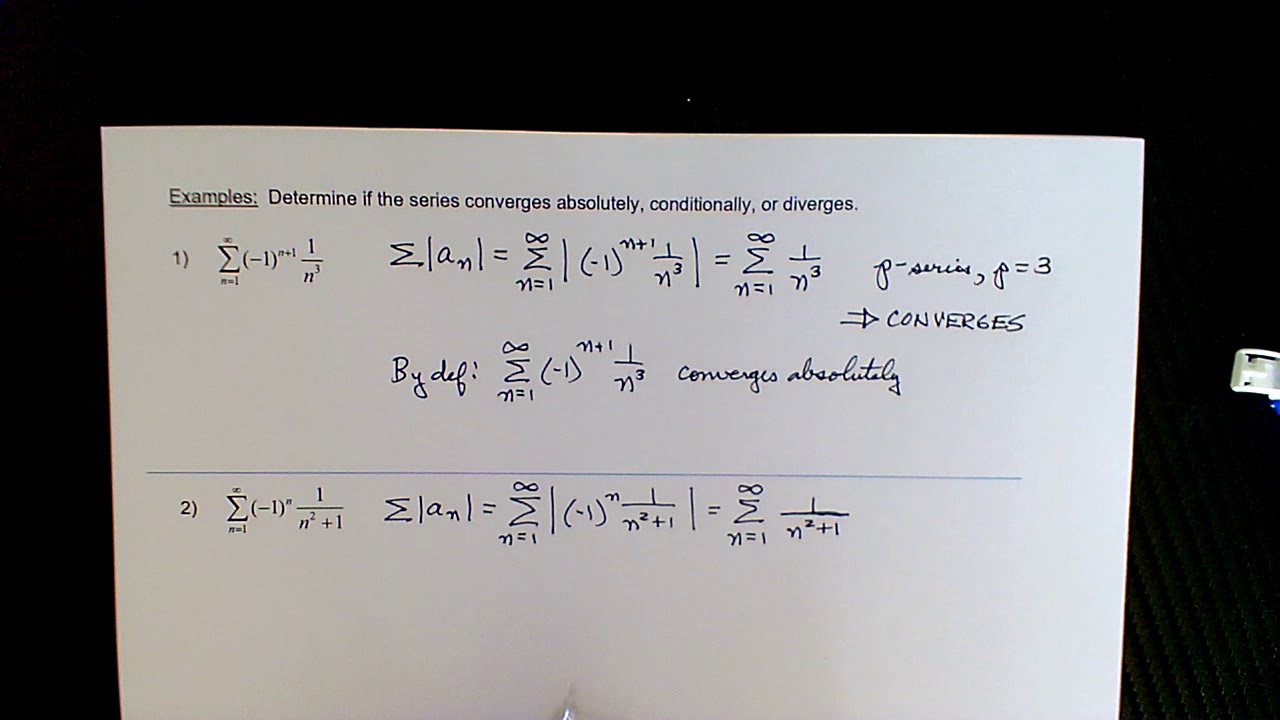 Examples: Determine if the series converges absolutely, conditionally, or diverges.
1) ∑_{n=1}^{∞} (-1)^{n+1} 1/n^3 Σ|a_n| = ∑_{n=1}^{∞} |(-1)^{n+1} 1/n^3| = ∑_{n=1}^{∞} 1/n^3 p-series, p=3
⇒ CONVERGES
By def: ∑_{n=1}^{∞} (-1)^{n+1} 1/n^3 converges absolutely
2) ∑_{n=1}^{∞} (-1)^n 1/(n^2+1) Σ|a_n| = ∑_{n=1}^{∞} |(-1)^n 1/(n^2+1)| = ∑_{n=1}^{∞} 1/(n^2+1)